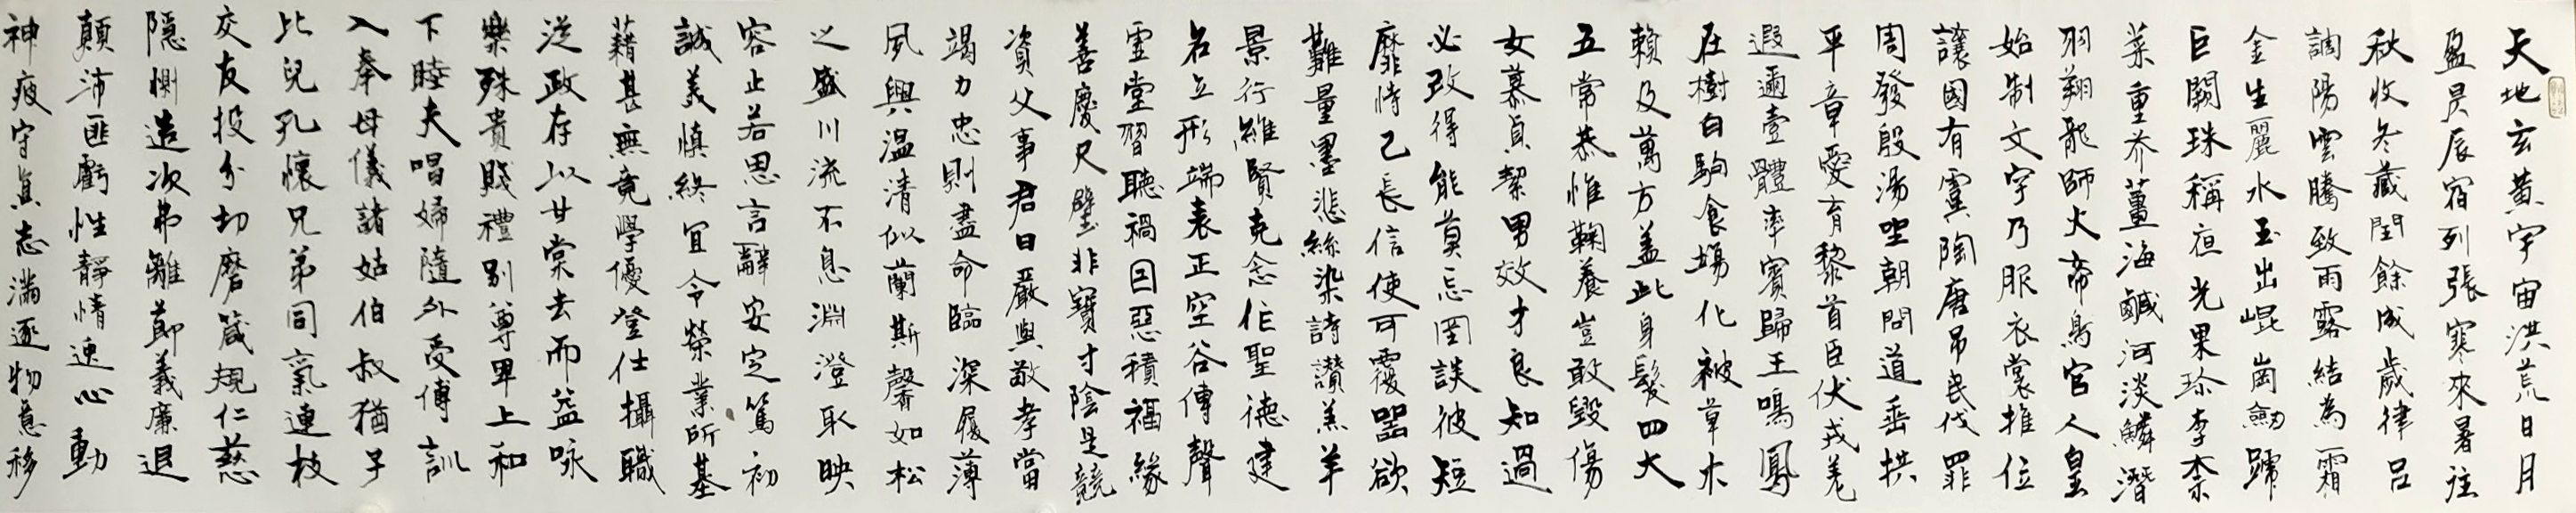 天地玄黃宇宙洪荒日月
盈昃辰宿列張寒來暑往
秋收冬藏閏餘成歲律呂
調陽雲騰致雨露結為霜
金生麗水玉出崐崗劒號
巨闕珠稱夜光果珍李柰
菜重芥薑海鹹河淡鱗潛
羽翔龍師火帝鳥官人皇
始制文字乃服衣裳推位
讓國有虞陶唐吊民伐罪
周發殷湯坐朝問道垂拱
平章愛育黎首臣伏戎羌
遐邇壹體率賓歸王鳴鳳
在樹白駒食場化被草木
賴及萬方蓋此身髮四大
五常恭惟鞠養豈敢毀傷
女慕貞絜男效才良知過
必改得能莫忘罔談彼短
靡恃己長信使可覆器欲
難量墨悲絲染詩讚羔羊
景行維賢克念作聖德建
名立形端表正空谷傳聲
虛堂習聽禍因惡積福緣
善慶尺璧非寶寸陰是競
資父事君曰嚴與敬孝當
竭力忠則盡命臨深履薄
夙興温凊似蘭斯馨如松
之盛川流不息淵澄取映
容止若思言辭安定篤初
誠美慎終宜令榮業所基
藉甚無竟學優登仕攝職
從政存以甘棠去而益咏
樂殊貴賤禮別尊卑上和
下睦夫唱婦隨外受傅訓
入奉母儀諸姑伯叔猶子
比兒孔懷兄弟同氣連枝
交友投分切磨箴規仁慈
隱惻造次弗離節義廉退
顛沛匪虧性靜情逸心動
神疲守真志滿逐物意移